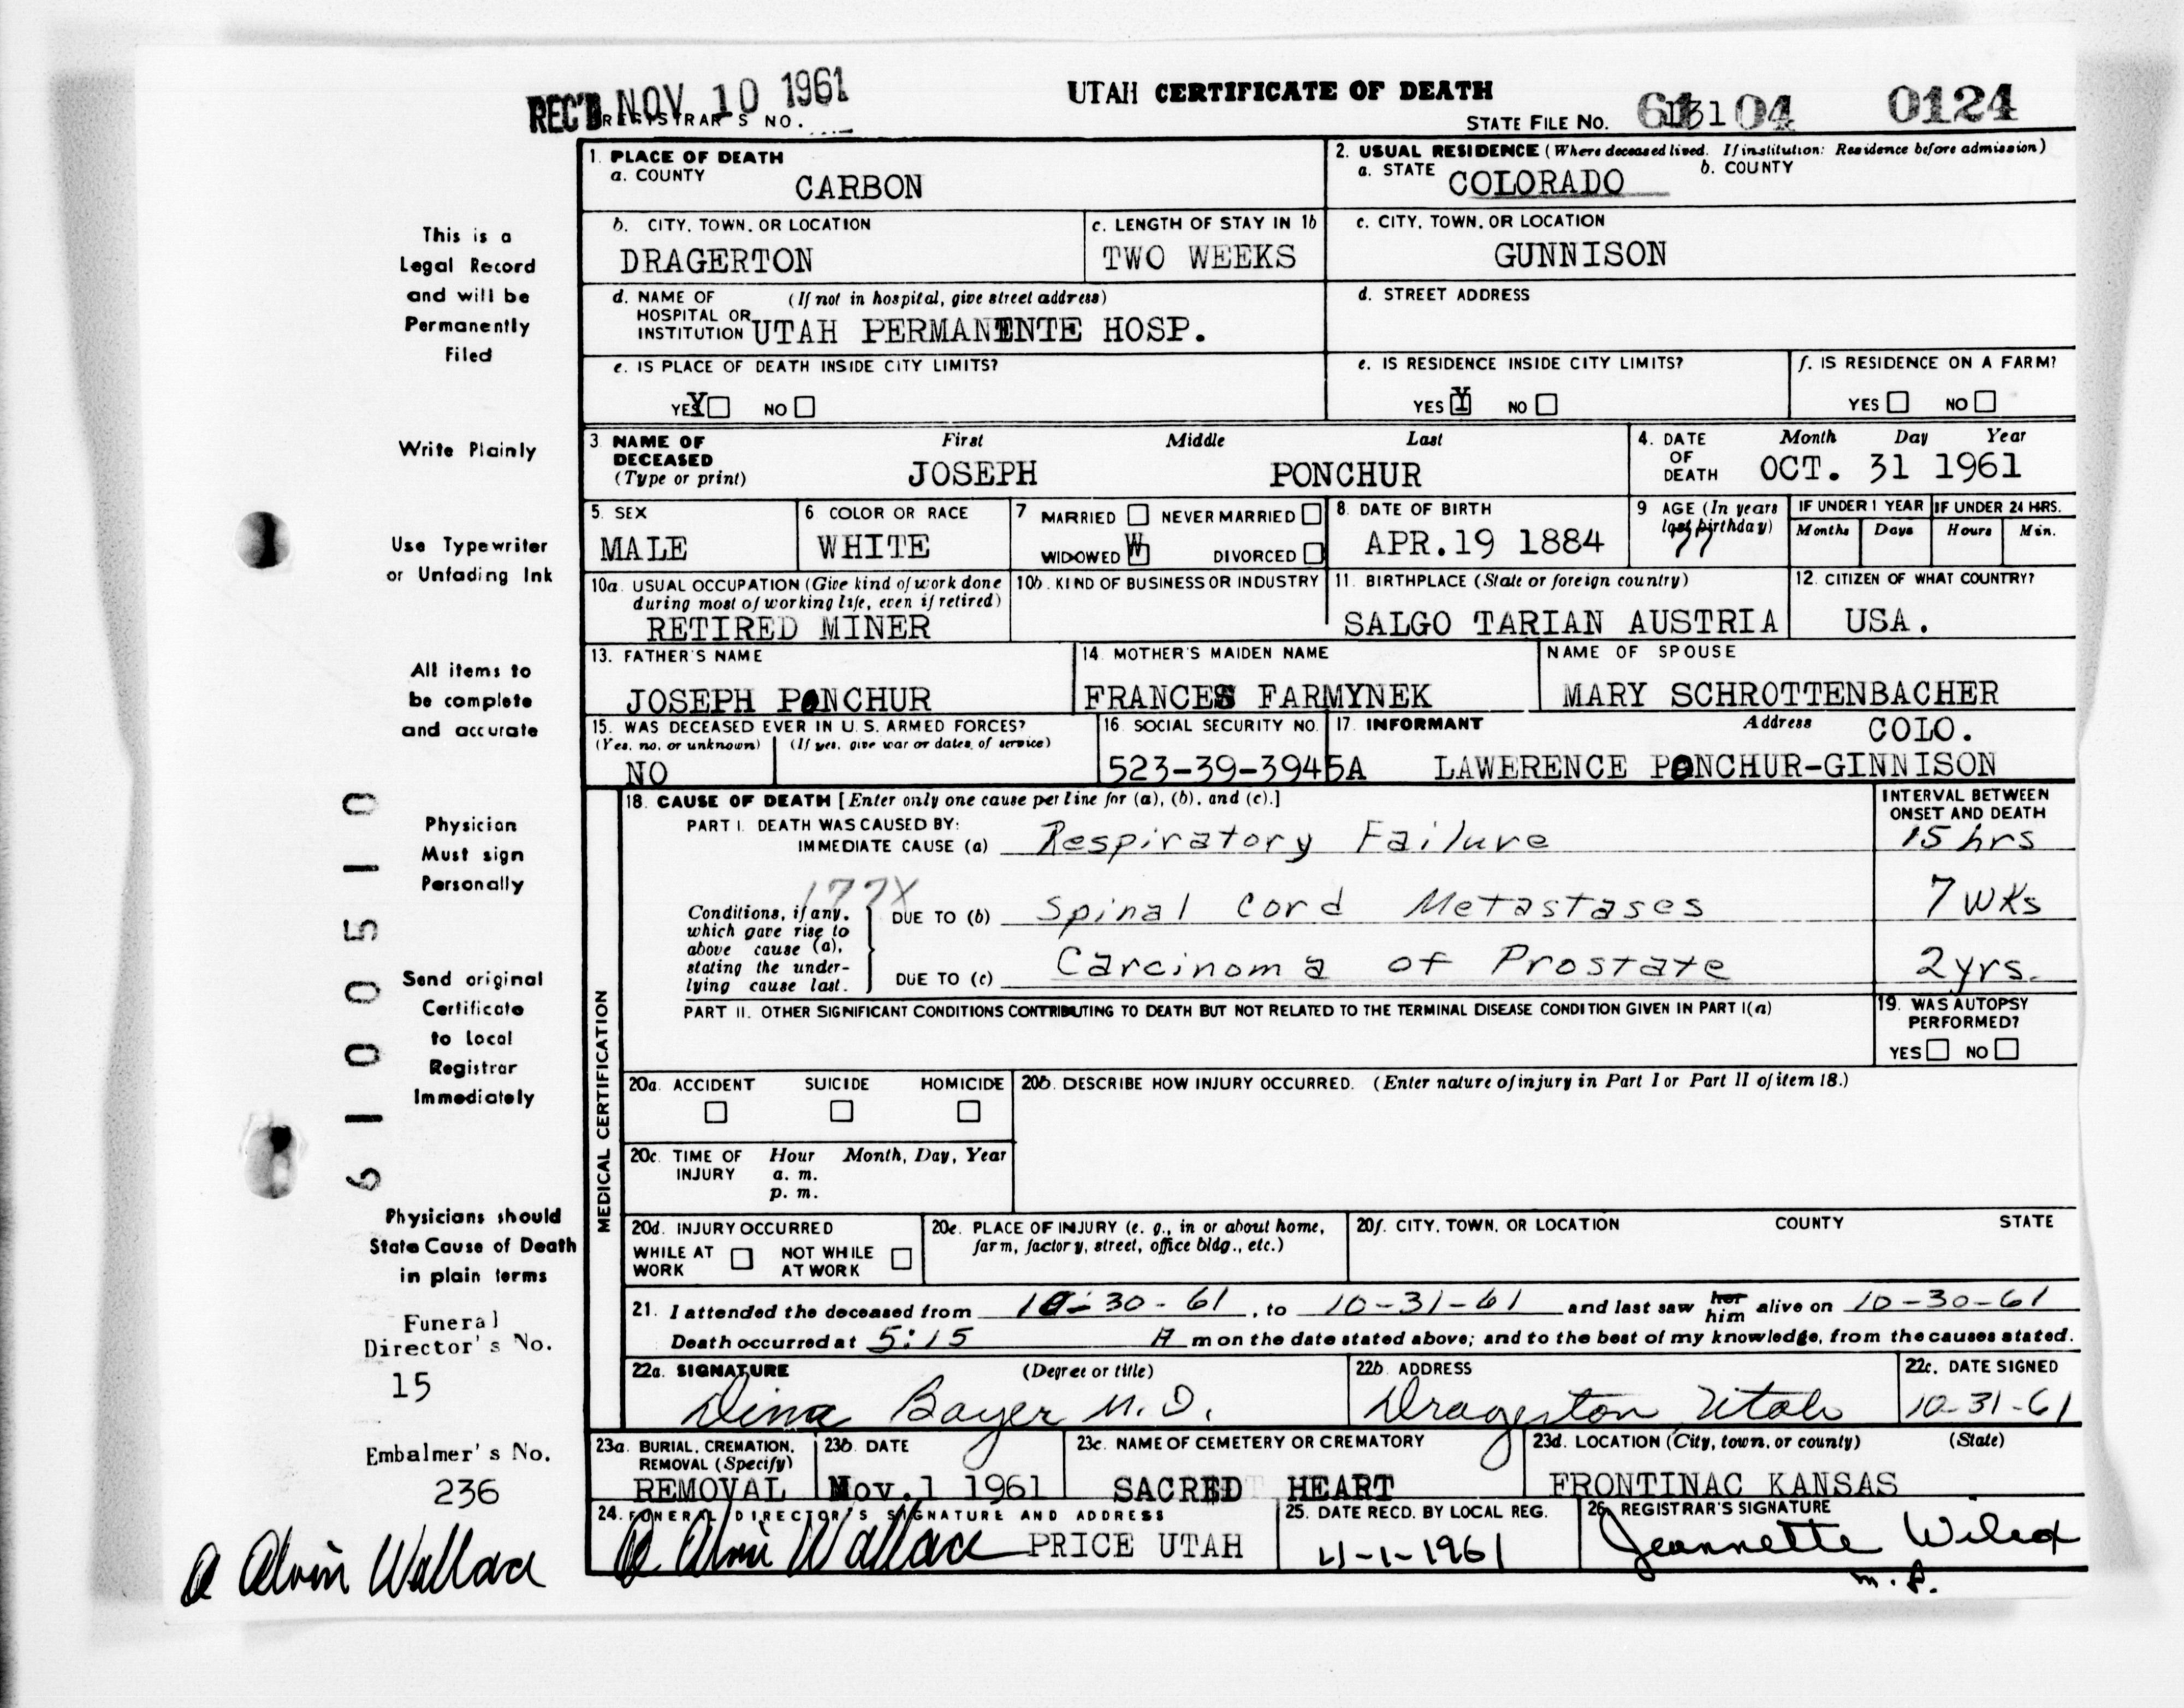 REC'D NOV 10 1961
UTAH CERTIFICATE OF DEATH
REGISTRAR'S NO.
STATE FILE NO. 04 0124
1. PLACE OF DEATH
a. COUNTY CARBON
2. USUAL RESIDENCE (Where deceased lived. If institution: Residence before admission)
a. STATE COLORADO b. COUNTY
b. CITY, TOWN, OR LOCATION DRAGERTON
c. LENGTH OF STAY IN 1b TWO WEEKS
c. CITY, TOWN, OR LOCATION GUNNISON
d. NAME OF HOSPITAL OR INSTITUTION (If not in hospital, give street address) UTAH PERMANENTE HOSP.
d. STREET ADDRESS
e. IS PLACE OF DEATH INSIDE CITY LIMITS?
YES Y NO
e. IS RESIDENCE INSIDE CITY LIMITS?
YES Y NO
f. IS RESIDENCE ON A FARM?
YES NO
3 NAME OF DECEASED (Type or print) First Middle Last
JOSEPH PONCHUR
4. DATE OF DEATH Month Day Year
OCT. 31 1961
5. SEX MALE
6 COLOR OR RACE WHITE
7 MARRIED NEVER MARRIED
WIDOWED W DIVORCED
8. DATE OF BIRTH APR.19 1884
9 AGE (In years last birthday) 77
IF UNDER 1 YEAR Months Days
IF UNDER 24 HRS. Hours Min.
10a. USUAL OCCUPATION (Give kind of work done during most of working life, even if retired)
RETIRED MINER
10b. KIND OF BUSINESS OR INDUSTRY
11. BIRTHPLACE (State or foreign country)
SALGO TARIAN AUSTRIA
12. CITIZEN OF WHAT COUNTRY?
USA.
13. FATHER'S NAME
JOSEPH PONCHUR
14. MOTHER'S MAIDEN NAME
FRANCES FARMYNEK
NAME OF SPOUSE
MARY SCHROTTENBACHER
15. WAS DECEASED EVER IN U.S. ARMED FORCES?
(Yes, no, or unknown) (If yes, give war or dates of service)
NO
16 SOCIAL SECURITY NO.
523-39-3945A
17. INFORMANT Address COLO.
LAWERENCE PONCHUR-GINNISON
MEDICAL CERTIFICATION
18. CAUSE OF DEATH [Enter only one cause per line for (a), (b), and (c).]
INTERVAL BETWEEN ONSET AND DEATH
PART I. DEATH WAS CAUSED BY:
IMMEDIATE CAUSE (a) Respiratory Failure 15 hrs
177X
Conditions, if any, which gave rise to above cause (a), stating the underlying cause last.
DUE TO (b) Spinal Cord Metastases 7 wks
DUE TO (c) Carcinoma of Prostate 2 yrs.
PART II. OTHER SIGNIFICANT CONDITIONS CONTRIBUTING TO DEATH BUT NOT RELATED TO THE TERMINAL DISEASE CONDITION GIVEN IN PART I(a)
19. WAS AUTOPSY PERFORMED?
YES NO
20a. ACCIDENT SUICIDE HOMICIDE
20b. DESCRIBE HOW INJURY OCCURRED. (Enter nature of injury in Part I or Part II of item 18.)
20c. TIME OF INJURY Hour Month, Day, Year
a. m.
p. m.
20d. INJURY OCCURRED
WHILE AT WORK NOT WHILE AT WORK
20e. PLACE OF INJURY (e. g., in or about home, farm, factory, street, office bldg., etc.)
20f. CITY, TOWN, OR LOCATION COUNTY STATE
21. I attended the deceased from 10-30-61, to 10-31-61 and last saw her him alive on 10-30-61
Death occurred at 5:15 A m on the date stated above; and to the best of my knowledge, from the causes stated.
22a. SIGNATURE (Degree or title)
Bayer M.D.
22b. ADDRESS
Dragerton Utah
22c. DATE SIGNED
10-31-61
23a. BURIAL, CREMATION, REMOVAL (Specify)
REMOVAL
23b. DATE
Nov.1 1961
23c. NAME OF CEMETERY OR CREMATORY
SACRED HEART
23d. LOCATION (City, town, or county) (State)
FRONTINAC KANSAS
24. FUNERAL DIRECTOR'S SIGNATURE AND ADDRESS
Wallace PRICE UTAH
25. DATE RECD. BY LOCAL REG.
11-1-1961
26. REGISTRAR'S SIGNATURE
Jeannette
This is a
Legal Record
and will be
Permanently
Filed
Write Plainly
Use Typewriter
or Unfading Ink
All items to
be complete
and accurate
Physician
Must sign
Personally
Send original
Certificate
to Local
Registrar
Immediately
Physicians should
State Cause of Death
in plain terms
Funeral
Director's No.
15
Embalmer's No.
236
Alvin Wallace
6100510